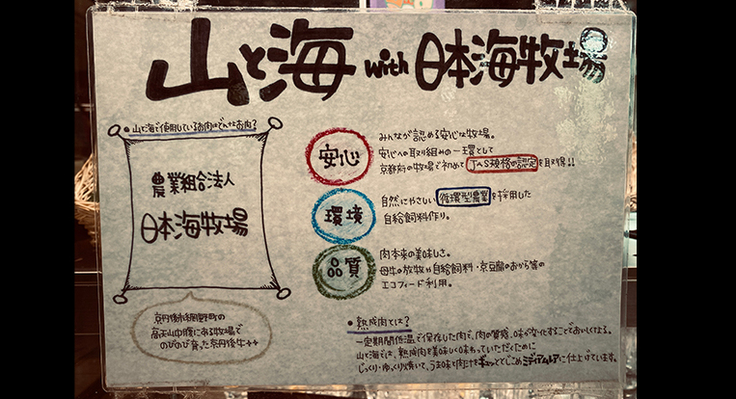 山と海 with 日本海牧場
●山と海で使用しているお肉はどんなお肉?
農業組合法人
日本海牧場
京丹後市網野町の
高天山中腹にある牧場で
のびのび育った京丹後牛++
安心
みんなが認める安心な牧場。
安心への取り組みの一環として
京都府の牧場で初めてJAS規格の認定を取得!!
環境
自然にやさしい循環型農業を採用した
自給飼料作り。
品質
肉本来の美味しさ。
母牛の放牧や自給飼料・京豆腐のおから等の
エコフィード利用。
●熟成肉とは?
一定期間低温で保存した肉で、肉の質感、味が変化することでおいしくなる。
山と海では、熟成肉を美味しく味わっていただくために
じっくり・ゆっくり焼いて、うま味と肉汁をギュッととじこめミディアムレアに仕上げています。